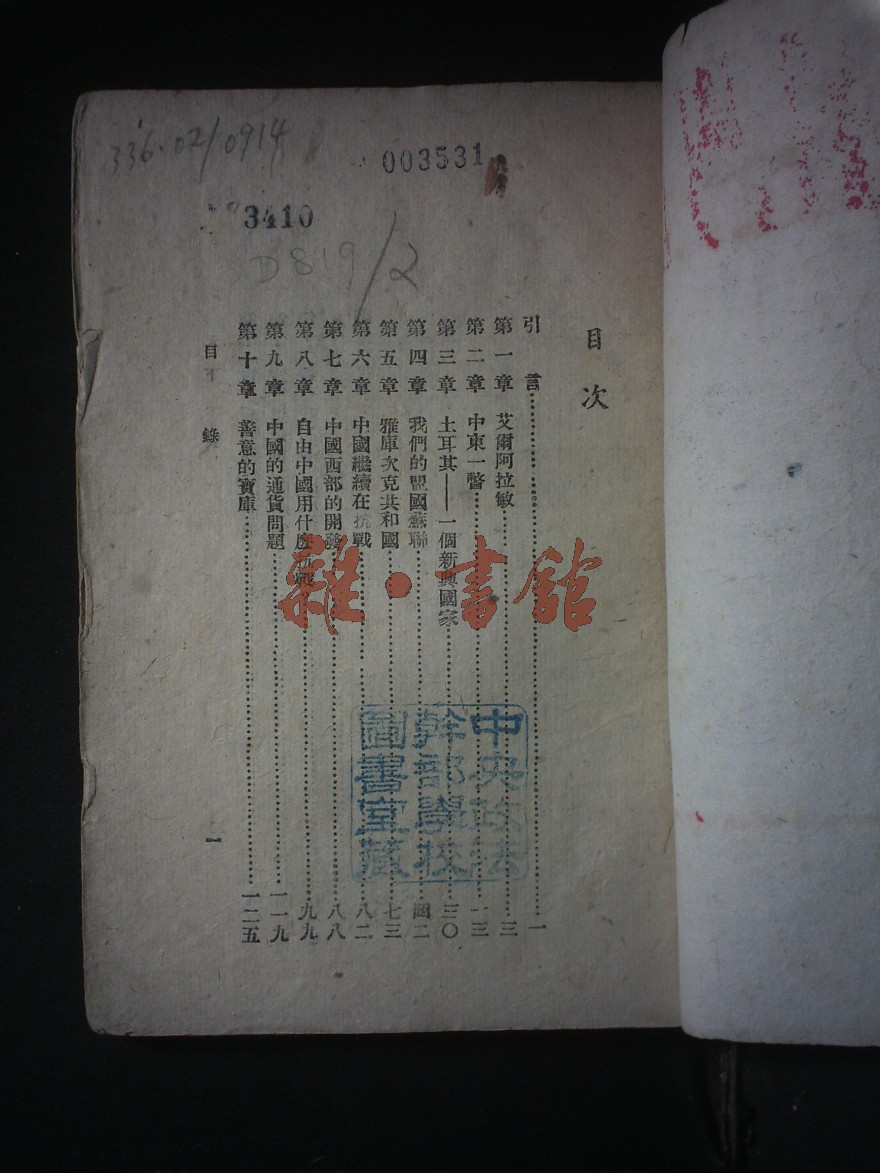 336.02/0914
003531
3410
D819/2
目次
引言 一
第一章 艾爾阿拉敏 三
第二章 中東一瞥 一三
第三章 土耳其——一個新興國家 三〇
第四章 我們的盟國蘇聯 四二
第五章 雅庫次克共和國 七三
第六章 中國繼續在抗戰 八二
第七章 中國西部的開發 八八
第八章 自由中國用什麼抗戰 九九
第九章 中國的通貨問題 一一九
第十章 善意的寶庫 一二五
目錄
一
雜·書館
中央政法
幹部學校
圖書室藏